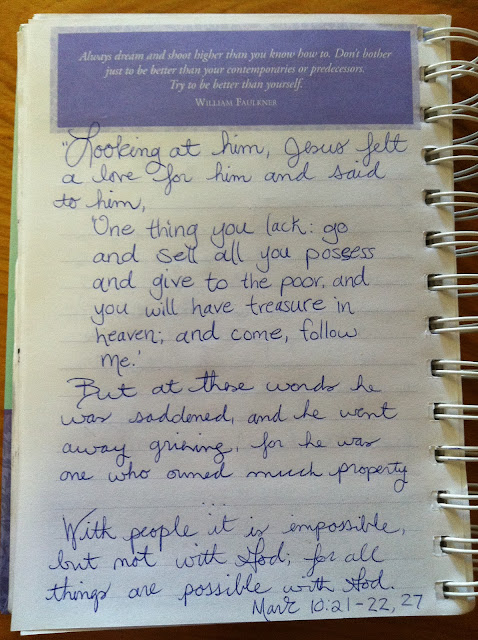 Always dream and shoot higher than you know how to. Don't bother
just to be better than your contemporaries or predecessors.
Try to be better than yourself.
WILLIAM FAULKNER
"Looking at him, Jesus felt
a love for him and said
to him,
'One thing you lack: go
and sell all you possess
and give to the poor, and
you will have treasure in
heaven; and come, follow
me.'
But at these words he
was saddened, and he went
away grieving, for he was
one who owned much property
...
With people it is impossible,
but not with God; for all
things are possible with God.
Mark 10:21-22, 27